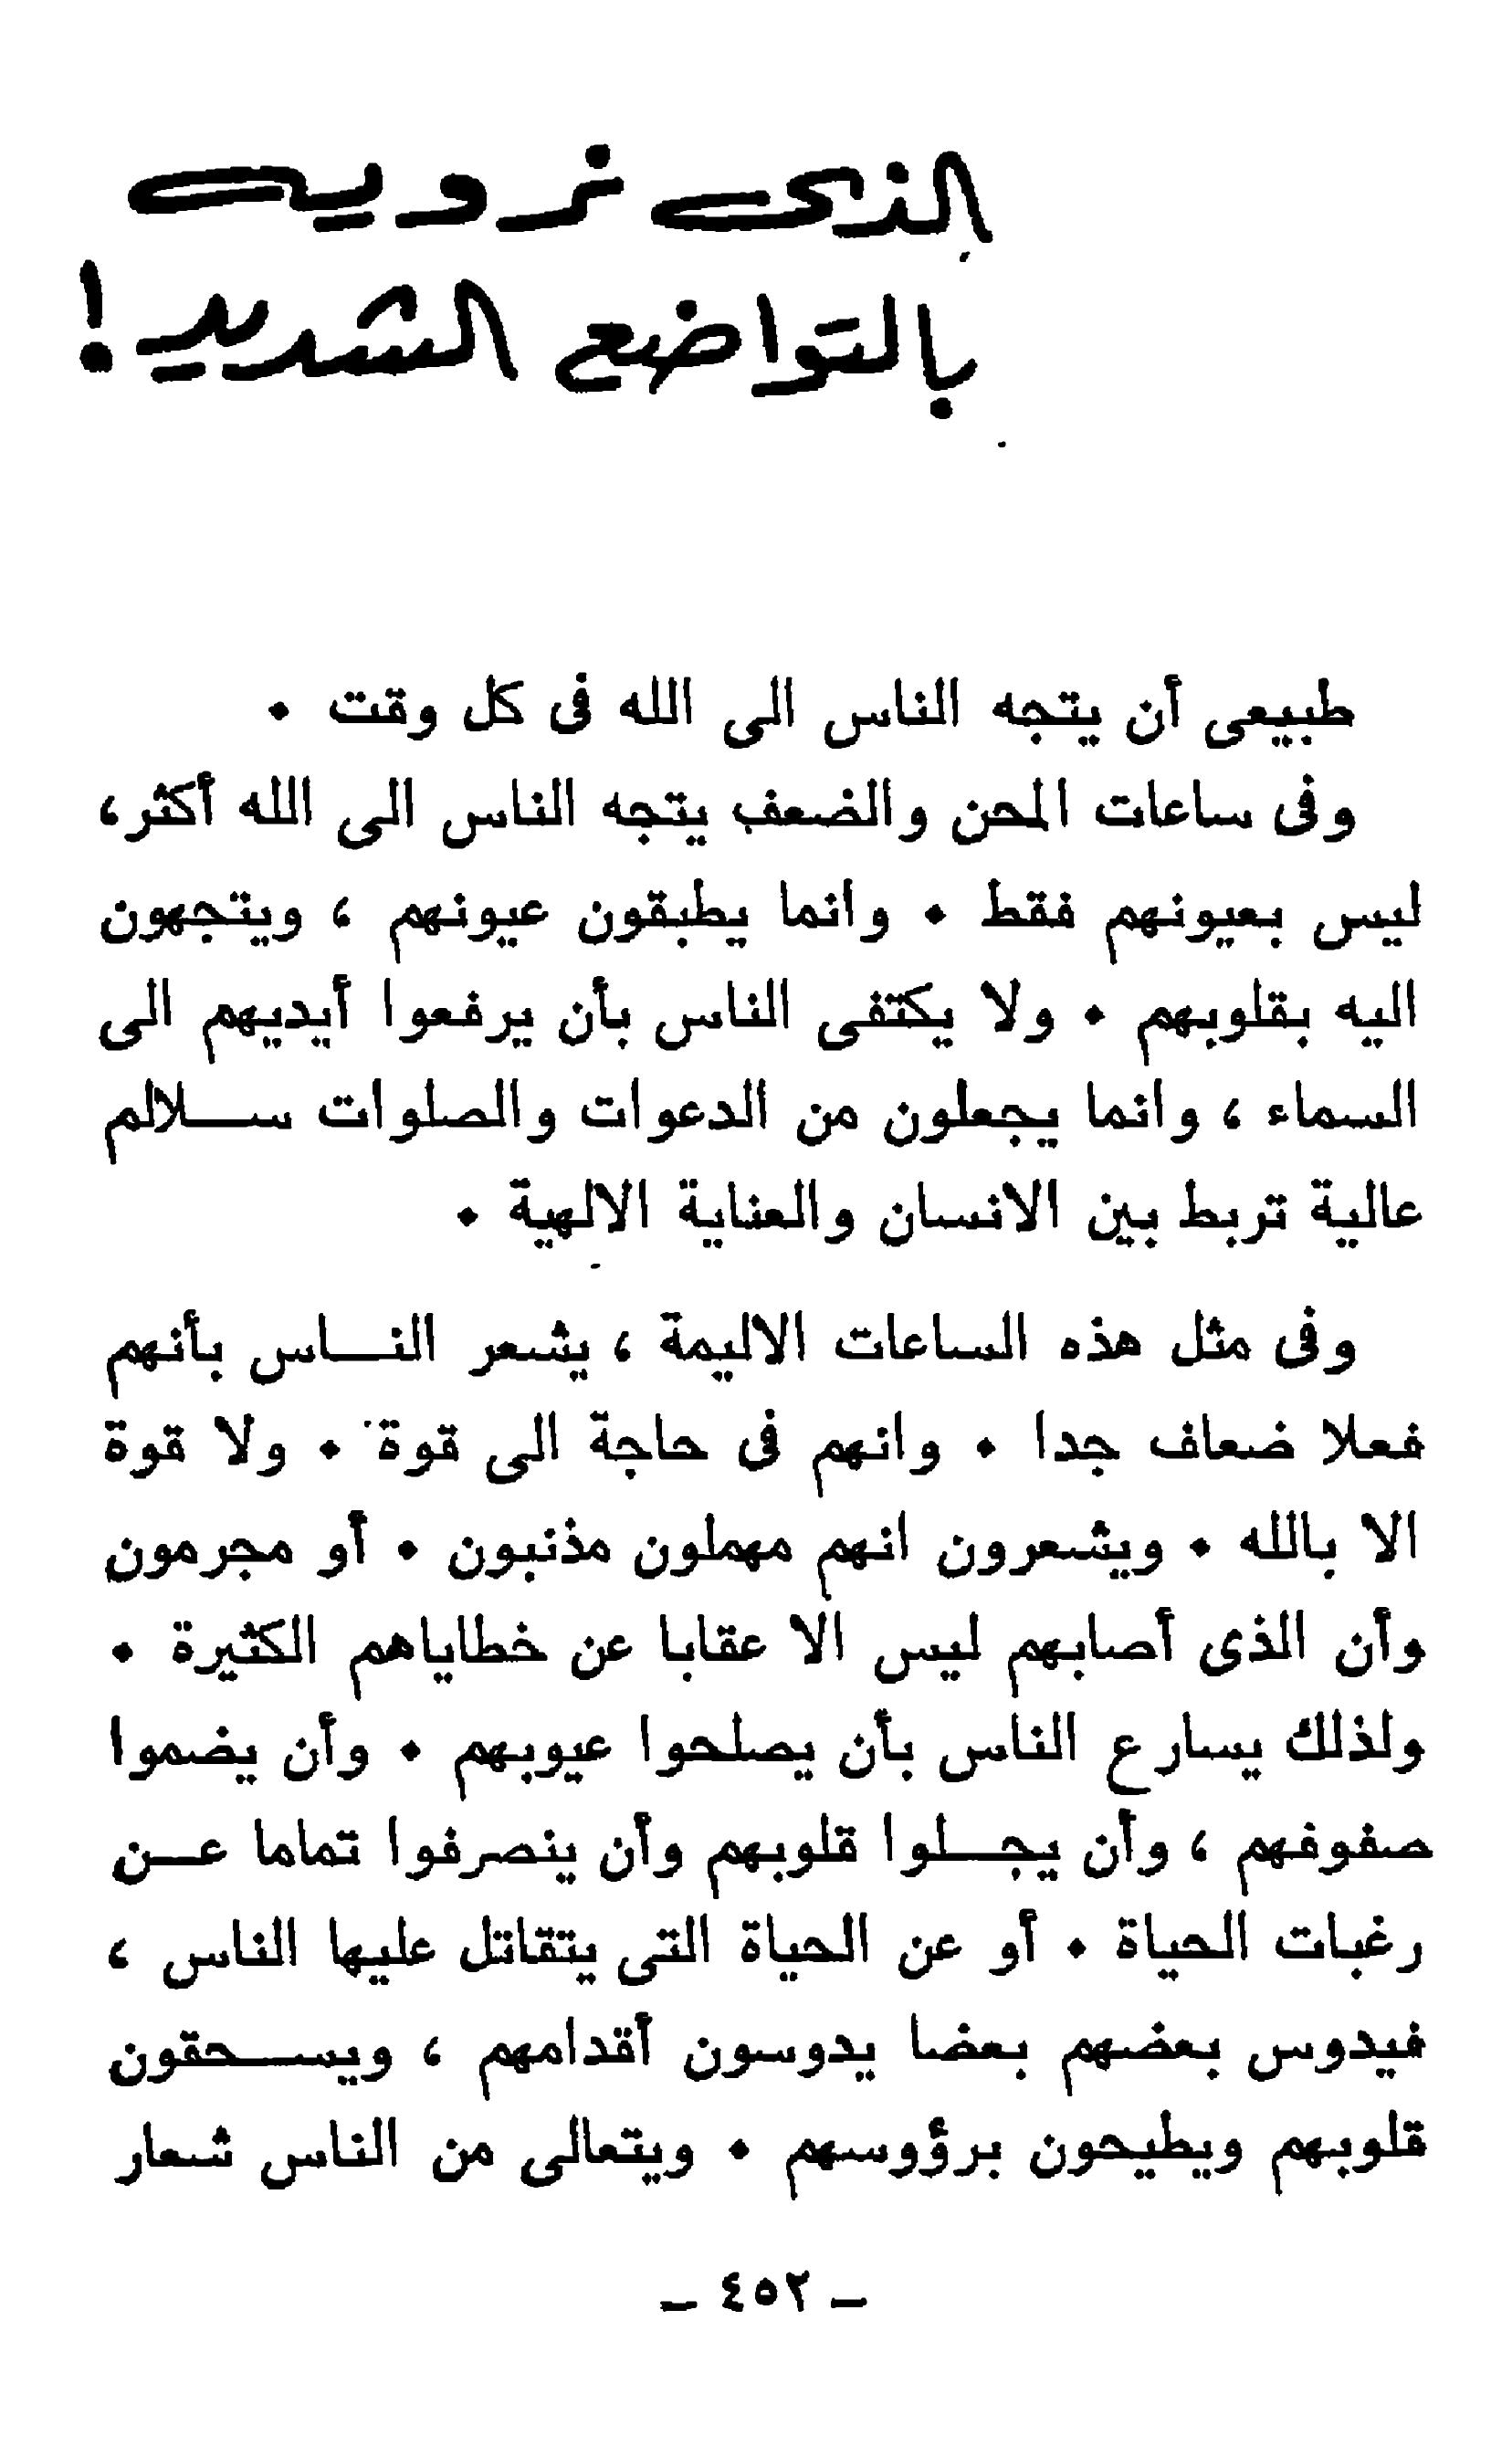 الذى نرويه
بالتواضع الشديد !
طبيعى أن يتجه الناس الى الله فى كل وقت .
وفى ساعات المحن والضعف يتجه الناس الى الله أكثر ،
ليس بعيونهم فقط . وانما يطبقون عيونهم ، ويتجهون
اليه بقلوبهم . ولا يكتفى الناس بأن يرفعوا أيديهم الى
السماء ، وانما يجعلون من الدعوات والصلوات سلالم
عالية تربط بين الانسان والعناية الالهية .
وفى مثل هذه الساعات الاليمة ، يشعر الناس بأنهم
فعلا ضعاف جدا . وانهم فى حاجة الى قوة . ولا قوة
الا بالله . ويشعرون انهم مهملون مذنبون . أو مجرمون
وأن الذى أصابهم ليس الا عقابا عن خطاياهم الكثيرة .
ولذلك يسارع الناس بأن يصلحوا عيوبهم . وأن يضموا
صفوفهم ، وأن يجلوا قلوبهم وأن ينصرفوا تماما عن
رغبات الحياة . أو عن الحياة التى يتقاتل عليها الناس ،
فيدوس بعضهم بعضا يدوسون أقدامهم ، ويسحقون
قلوبهم ويطيحون برؤوسهم . ويتعالى من الناس شعار
– ٤٥٢ –